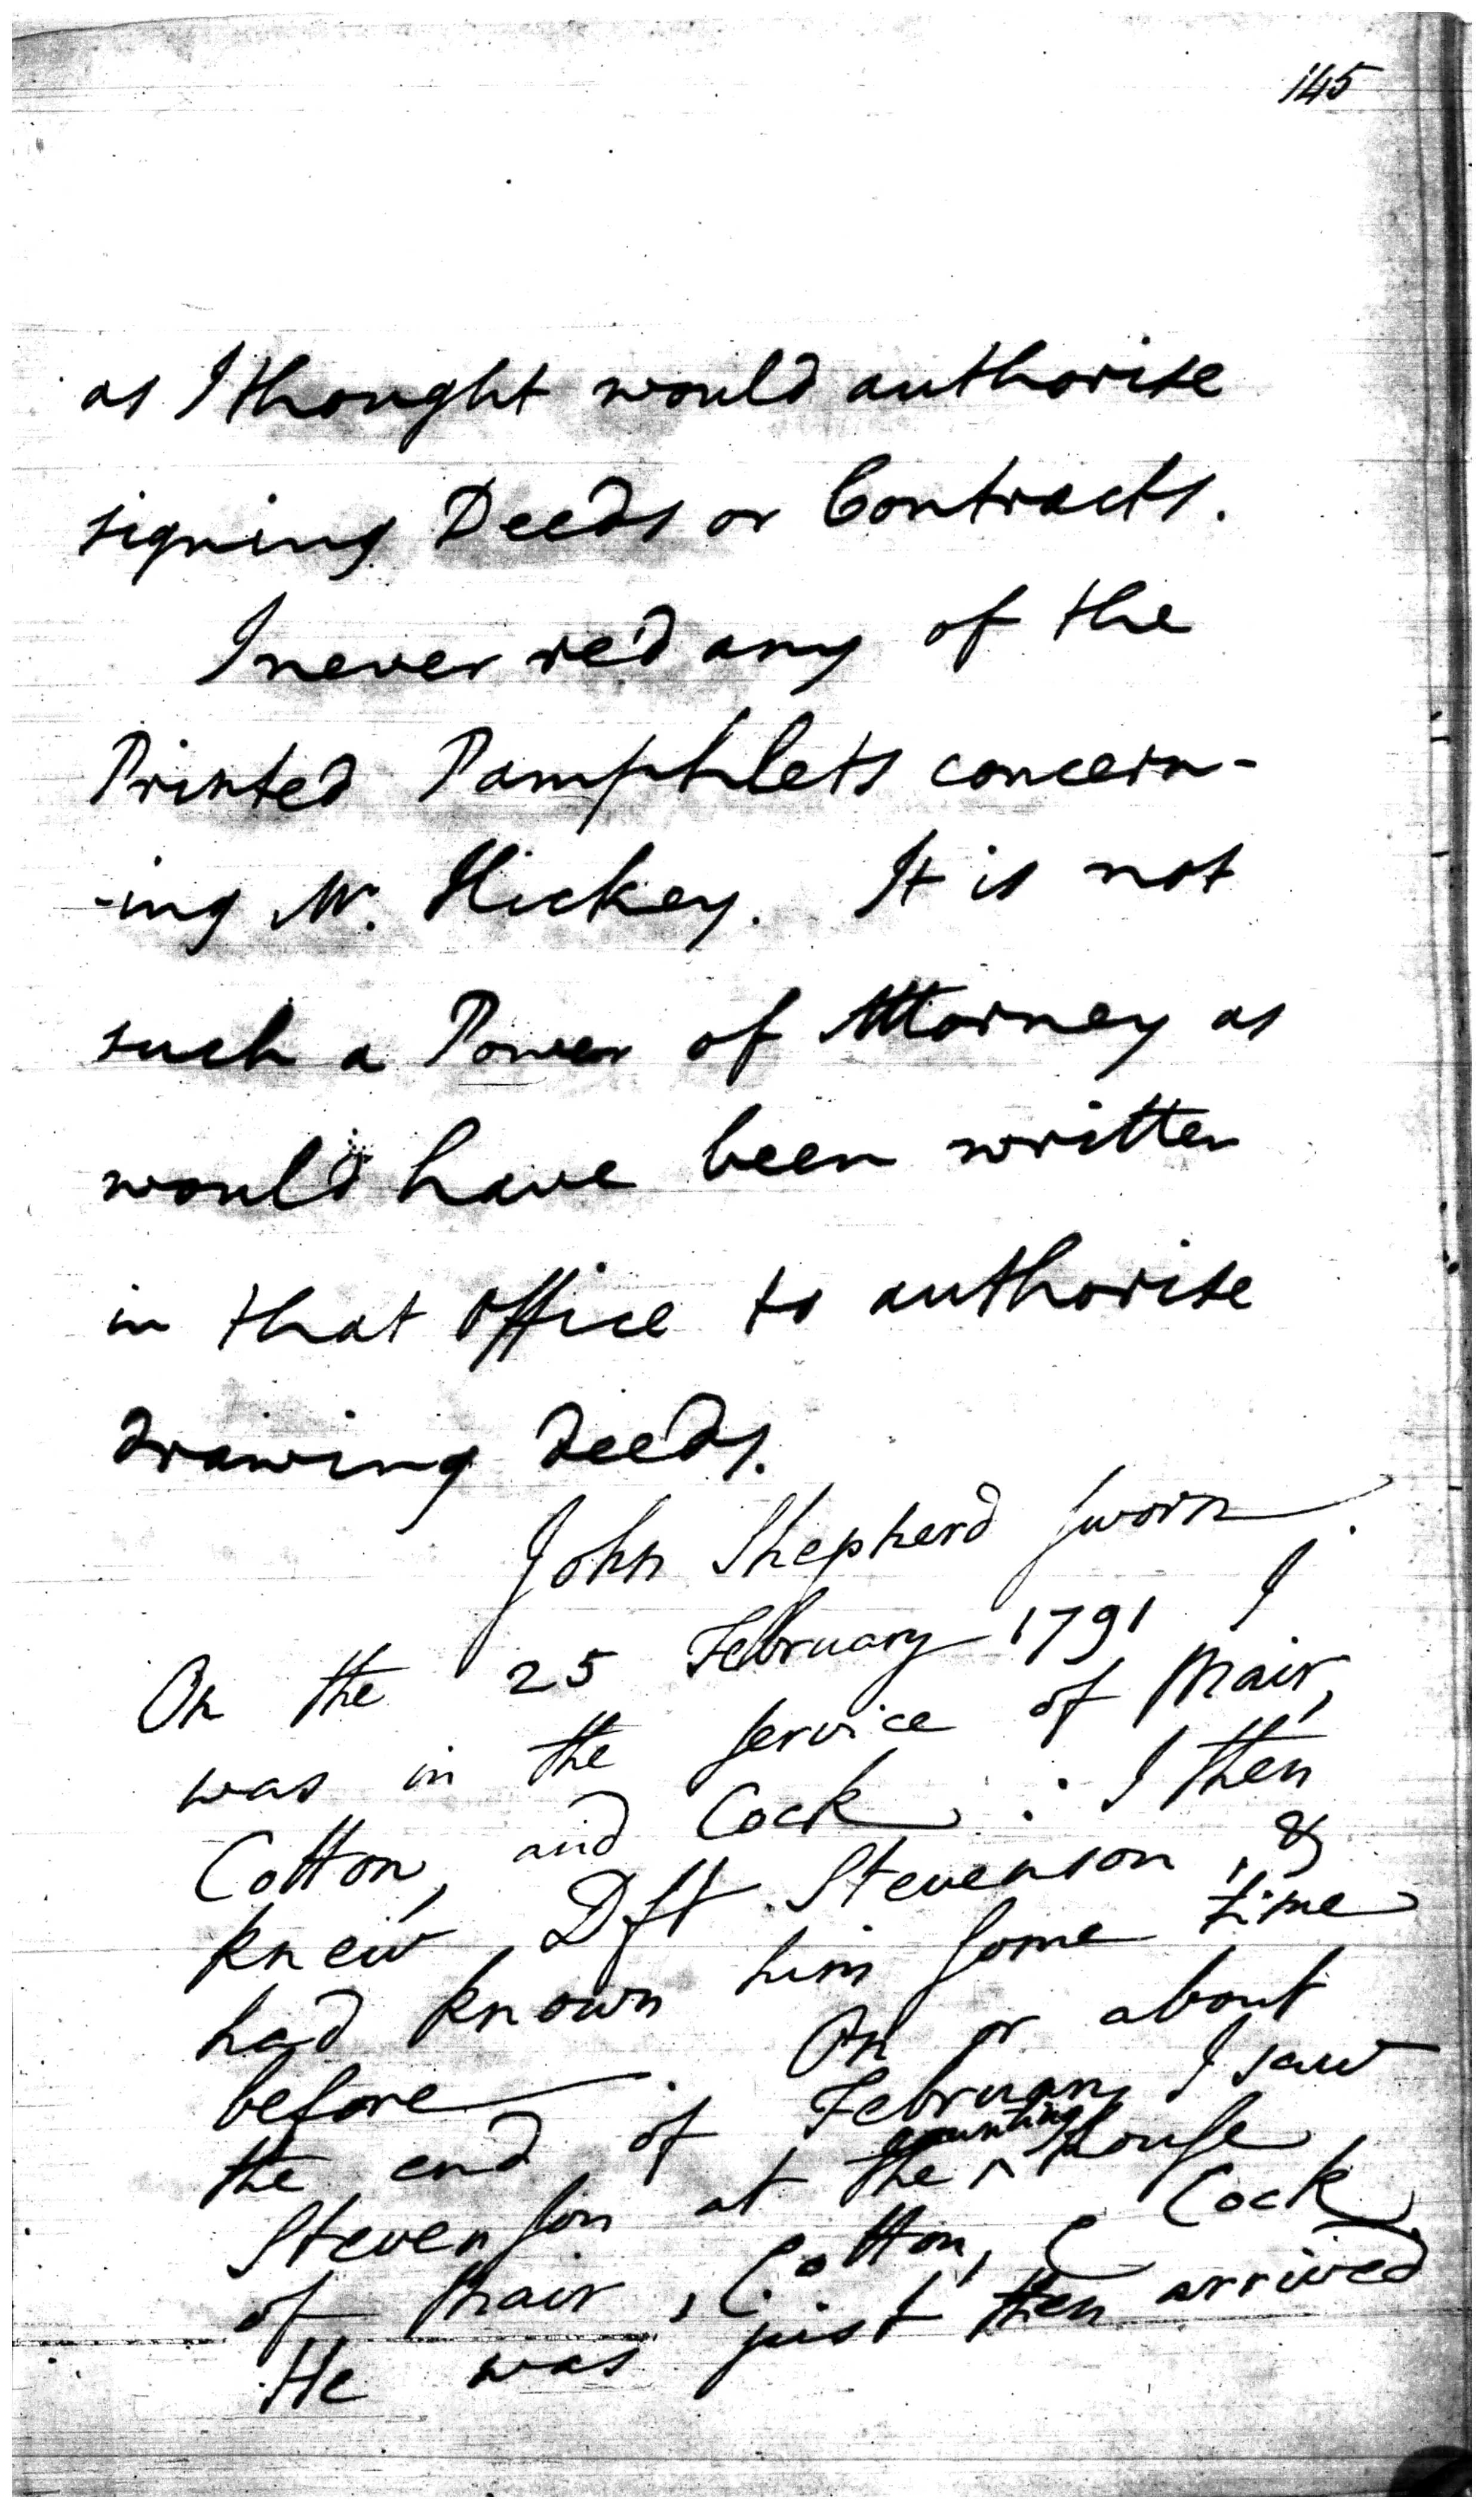 145
as I thought would authorise
signing Deeds or Contracts.
I never re'd any of the
Printed Pamphlets concern-
-ing Mr. Hickey. It is not
such a Power of Attorney as
would have been written
in that Office to authorise
drawing deeds.
John Shepherd sworn.
On the 25 February 1791 I
was in the service of Mair,
Cotton, and Cock. I then
knew Dft. Stevenson, &
had known him some time
before. On or about
the end of February I saw
Stevenson at the counting House
of Mair, Cotton, & Cock
He was just then arrived